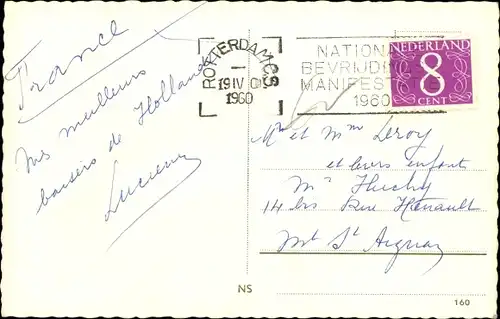 France
Mes meilleurs
baisers de Hollande
Lucienne
ROTTERDAM CS
19 IV
1960
NATIONALE
BEVRIJDINGS
MANIFESTATIE
1960
NEDERLAND
8
CENT
Mr et Mme Leroy
et leurs enfants
14 bis Rue Hénault
Mt St Aignan
NS
160